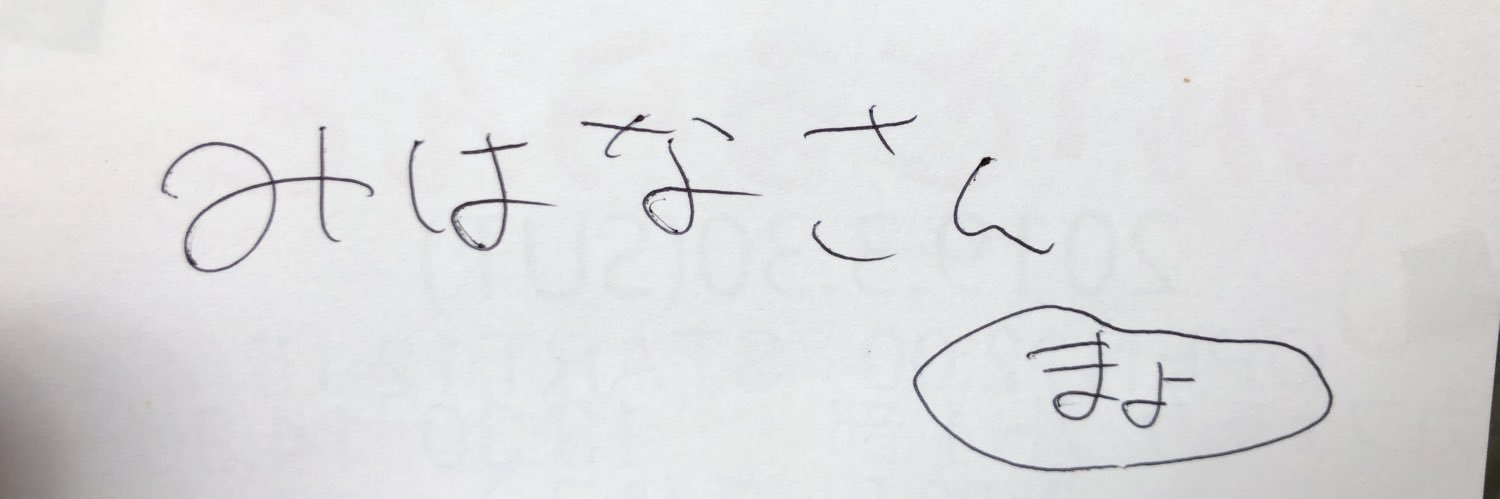 みはなさん
まよ